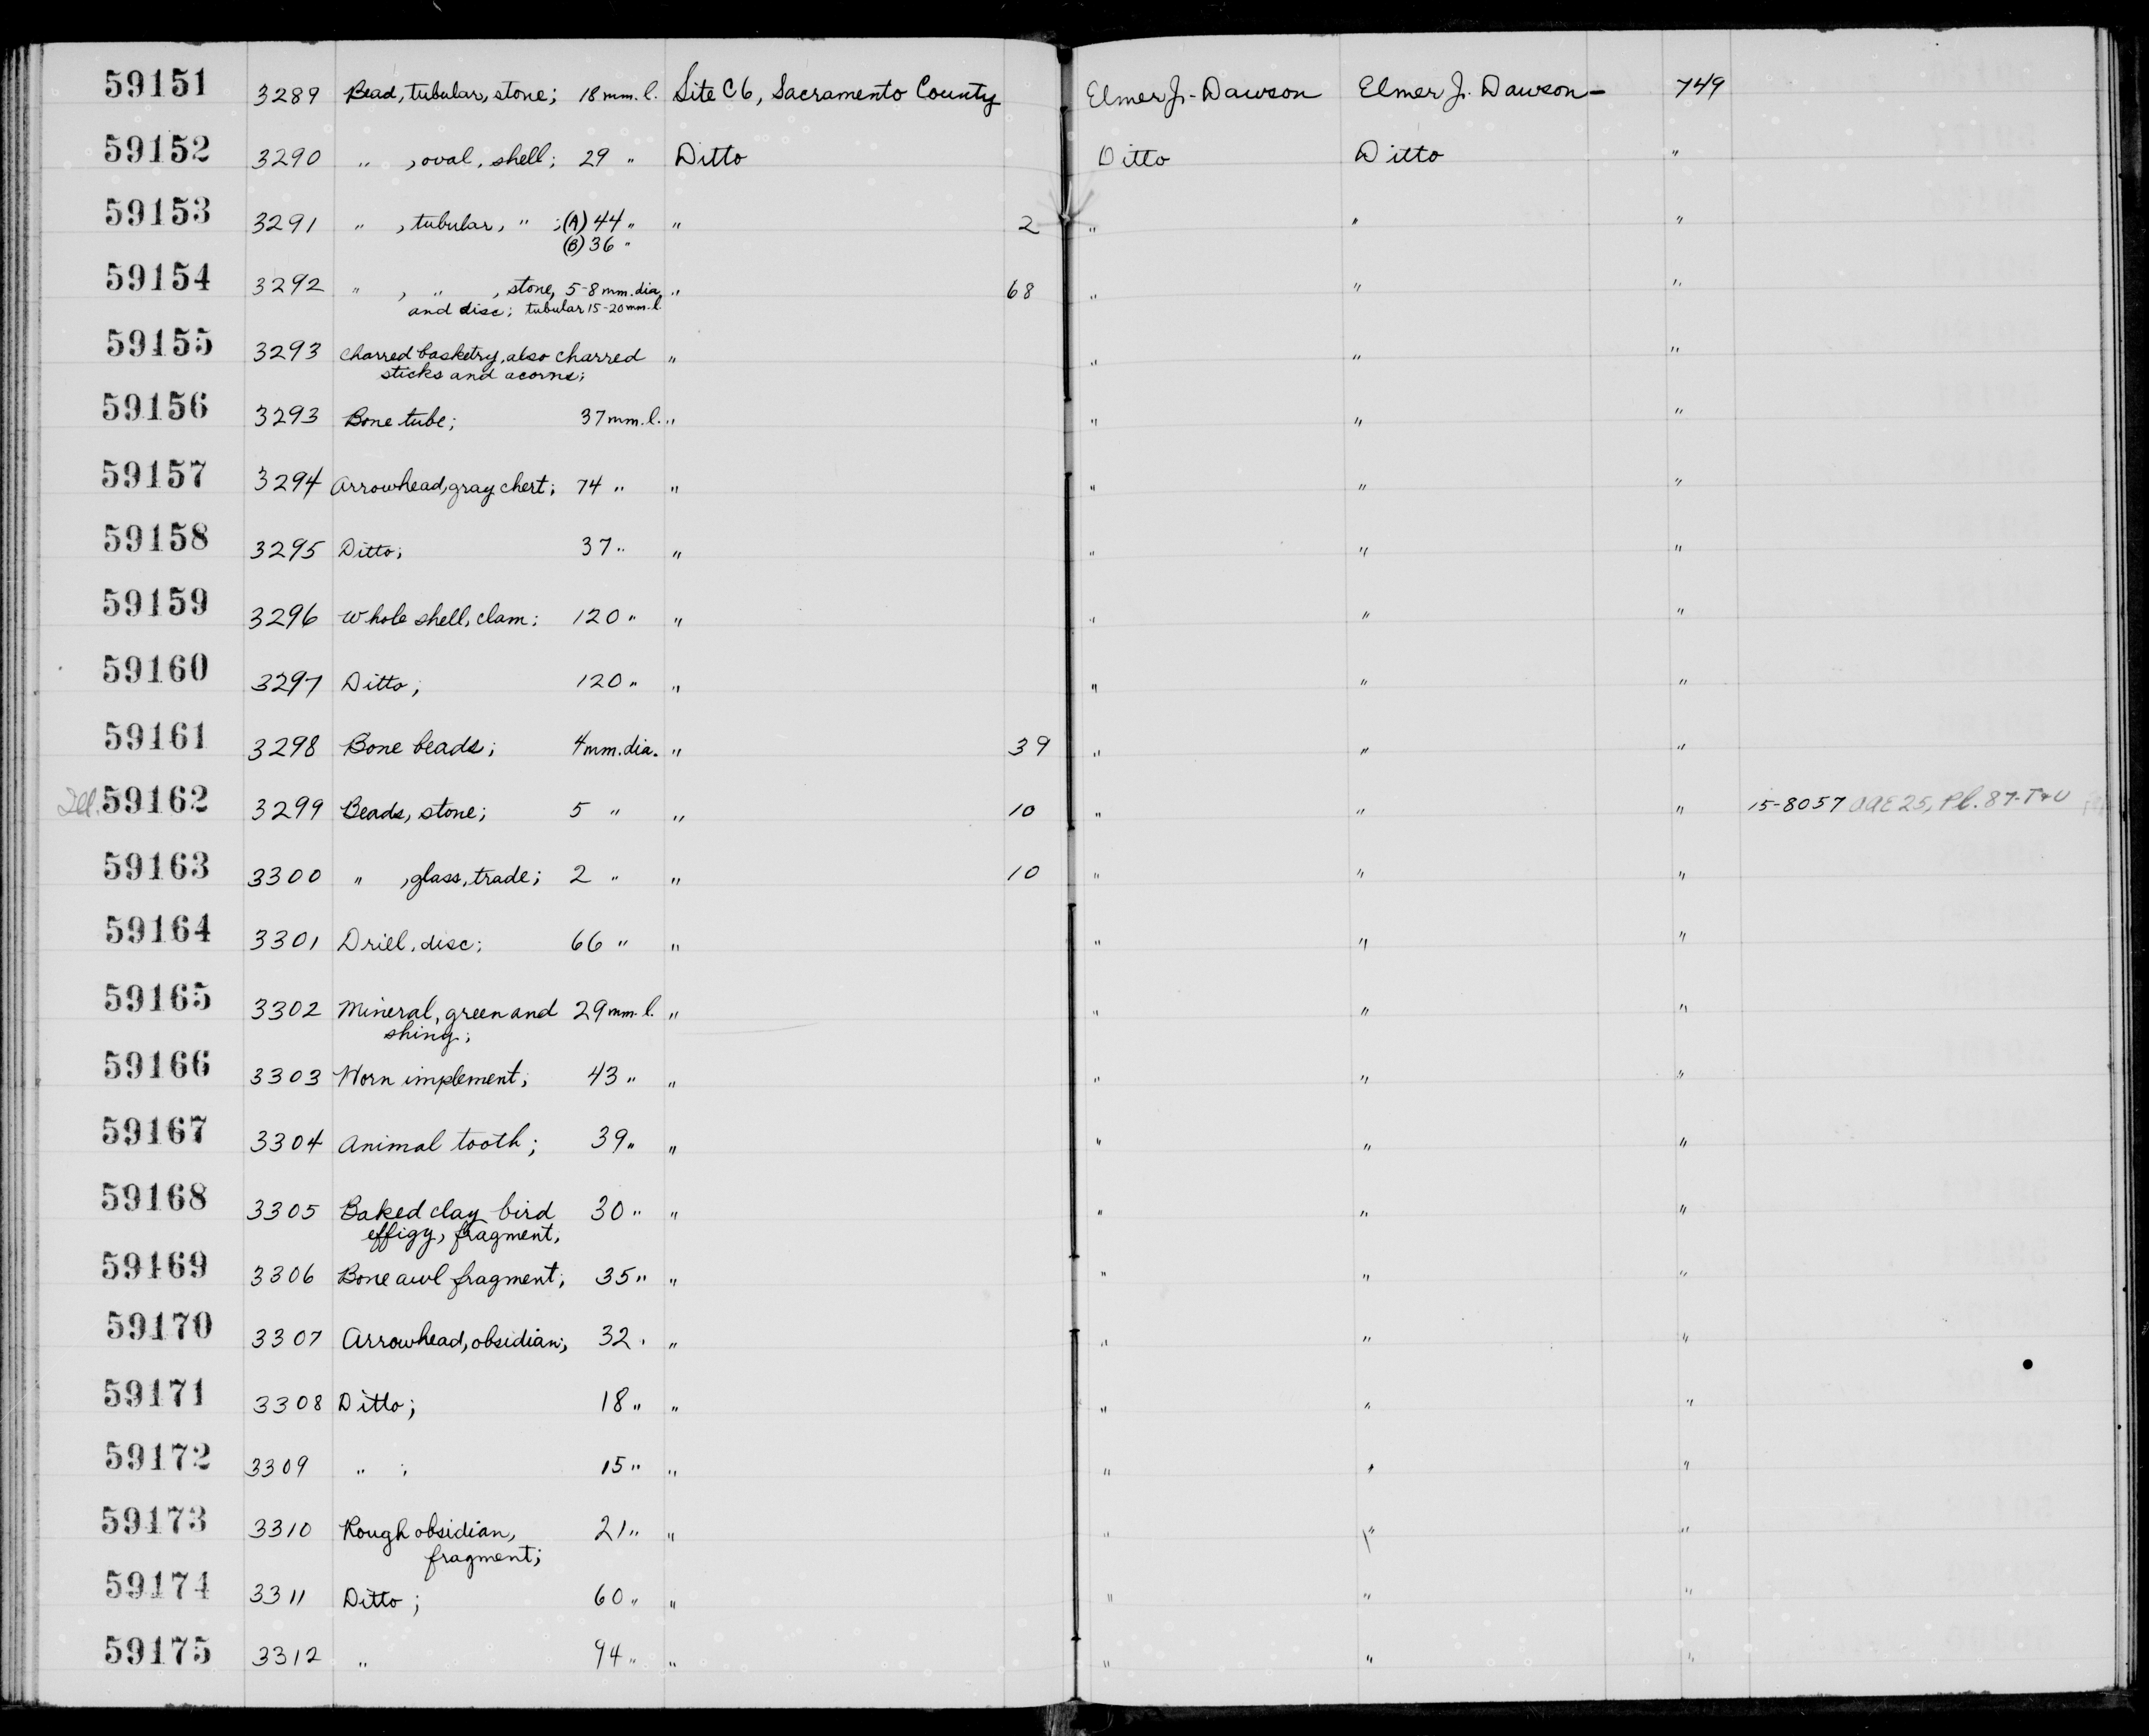 59151 3289 Bead, tubular, stone; 18 mm. l. Site C6, Sacramento County Elmer J. Dawson Elmer J. Dawson - 749
59152 3290 " , oval, shell; 29 " Ditto Ditto Ditto "
59153 3291 " , tubular, " ; (A) 44 " " 2 " " "
(B) 36 "
59154 3292 " , " , stone, 5-8 mm. dia. " 68 " " "
and disc; tubular 15-20 mm. l.
59155 3293 Charred basketry, also charred " " " "
sticks and acorns;
59156 3293 Bone tube; 37 mm. l. " " " "
59157 3294 Arrowhead, gray chert; 74 " " " " "
59158 3295 Ditto; 37 " " " " "
59159 3296 Whole shell, clam; 120 " " " " "
59160 3297 Ditto; 120 " " " " "
59161 3298 Bone beads; 4 mm. dia. " 39 " " "
Ill. 59162 3299 Beads, stone; 5 " " 10 " " " 15-8057 UAE 25, Pl. 87-T+U
59163 3300 " , glass, trade; 2 " " 10 " " "
59164 3301 Drill, disc; 66 " " " " "
59165 3302 Mineral, green and 29 mm. l. " " " "
shing;
59166 3303 Worn implement; 43 " " " " "
59167 3304 Animal tooth; 39 " " " " "
59168 3305 Baked clay bird 30 " " " " "
effigy, fragment,
59169 3306 Bone awl fragment; 35 " " " " "
59170 3307 Arrowhead, obsidian; 32 " " " " "
59171 3308 Ditto; 18 " " " " "
59172 3309 " ; 15 " " " " "
59173 3310 Rough obsidian, 21 " " " " "
fragment;
59174 3311 Ditto; 60 " " " " "
59175 3312 " 94 " " " " "